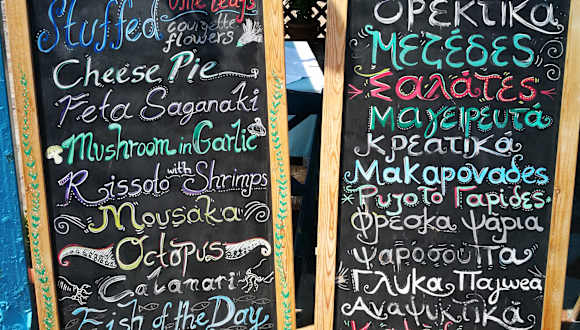 Stuffed vine leaves
courgette
flowers
Cheese Pie
Feta Saganaki
Mushroom in Garlic
Rissoto with Shrimps
Mousaka
Octopus
Calamari
Fish of the Day
Ορεκτικά
Μεζέδες
Σαλάτες
Μαγειρευτά
Κρεατικά
Μακαρονάδες
Ρυζότο Γαρίδες
Φρέσκα Ψάρια
Ψαρόσουπα
Γλυκά Παγωτά
Αναψυκτικά